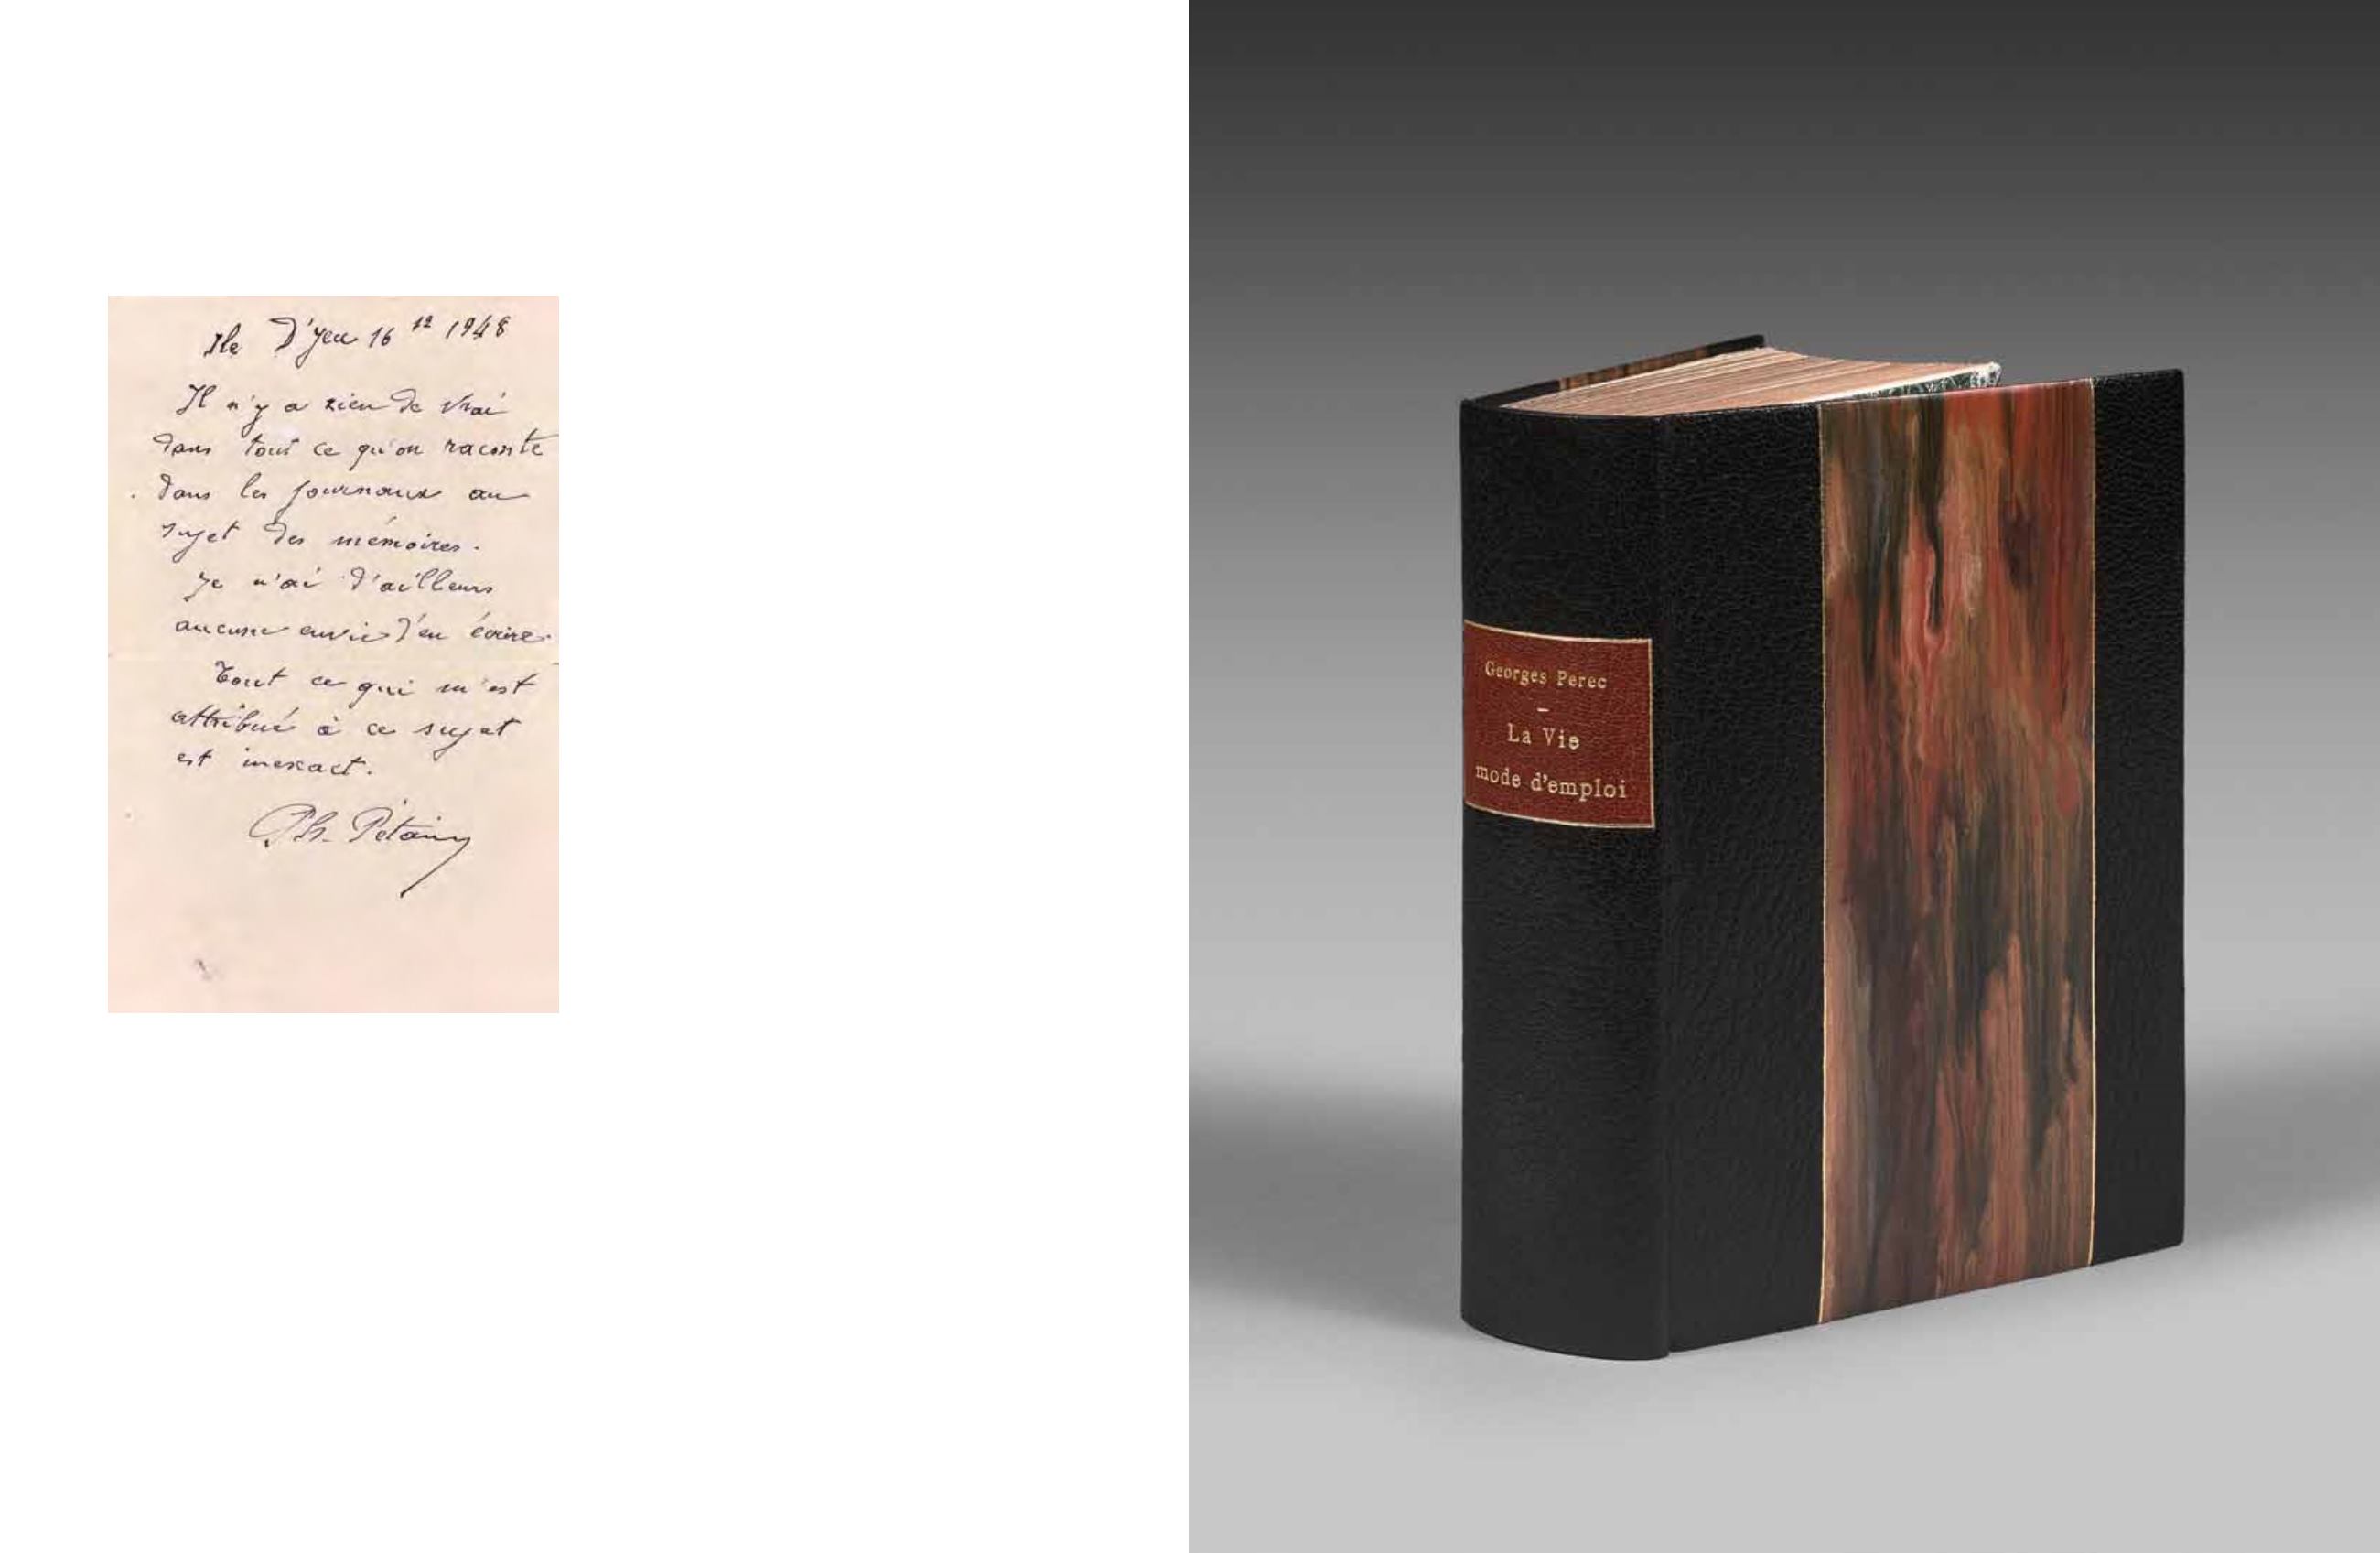 Ile D'Yeu 16 12 1948
Il n'y a rien de vrai
dans tout ce qu'on raconte
dans les journaux au
sujet des mémoires.
Je n'ai d'ailleurs
aucune envie d'en écrire.
Tout ce qui m'est
attribué à ce sujet
est inexact.
Ph. Pétain
Georges Perec
–
La Vie
mode d'emploi